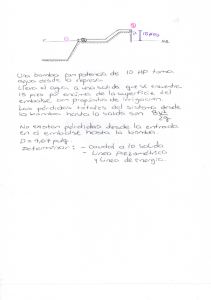 15 pies
Una bomba con potencia de 10 HP toma
agua desde la represa
lleva el agua a una salida que se encuentra
15 pies por encima de la superficie del
embalse con propósitos de irrigación.
Las pérdidas totales del sistema desde
la bomba hasta la salida son 8V²/2g
No existen pérdidas desde la entrada
en el embalse hasta la bomba.
D = 9,67 pulg.
Determinar: - Caudal a la salida
- Línea piezométrica
y línea de energía.